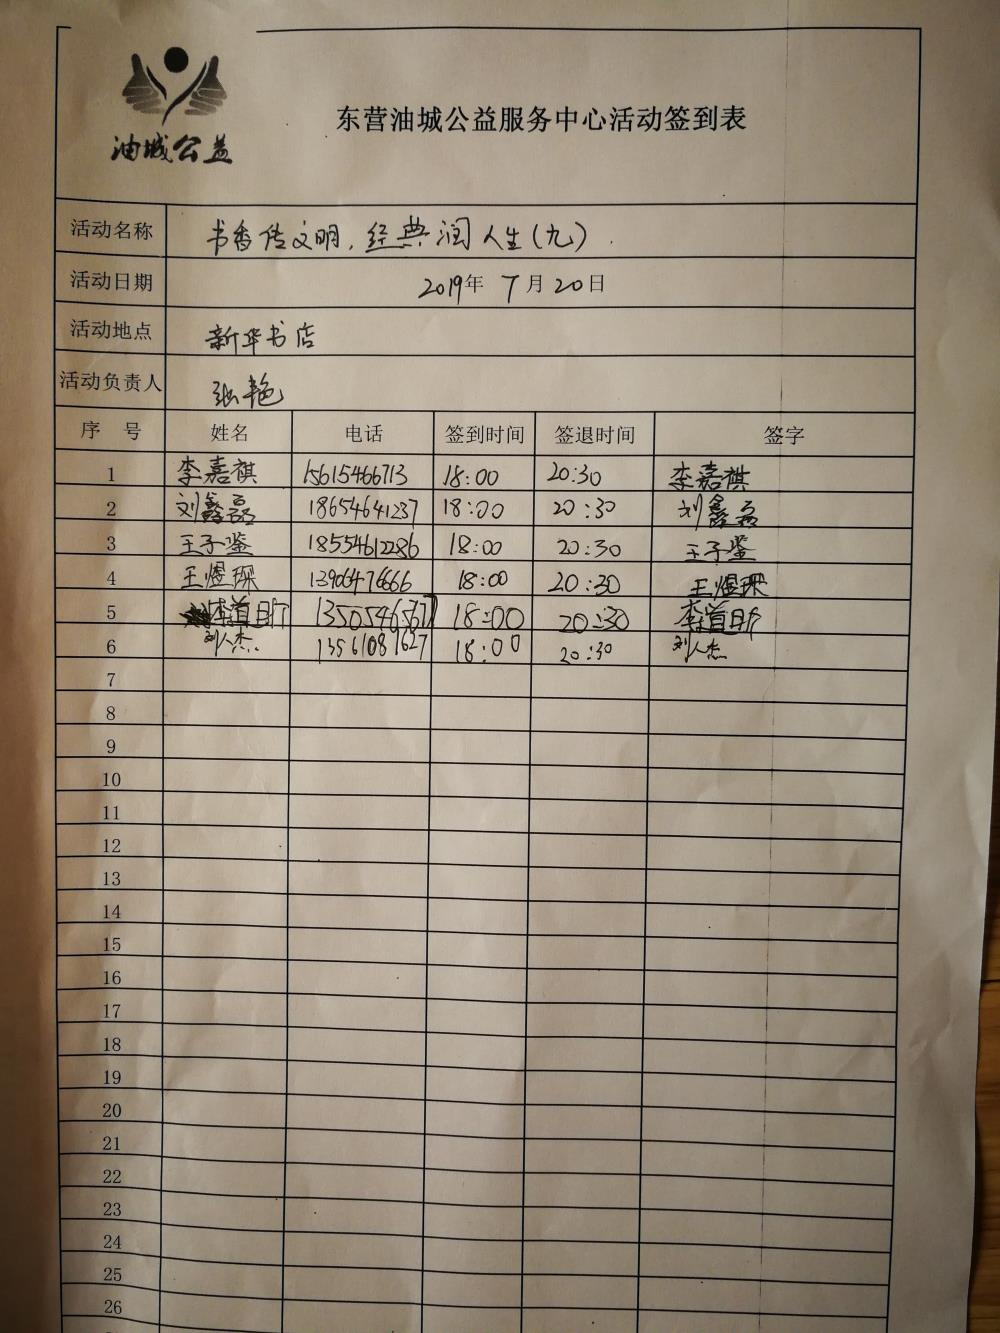 油城公益
东营油城公益服务中心活动签到表
活动名称 书香传文明,经典润人生(九).
活动日期 2019年 7月20日
活动地点 新华书店
活动负责人 张艳
序号 姓名 电话 签到时间 签退时间 签字
1 李嘉祺 15615466713 18:00 20:30 李嘉祺
2 刘鑫磊 18654641237 18:00 20:30 刘鑫磊
3 王子鉴 18554612286 18:00 20:30 王子鉴
4 王煜琛 18:00 20:30 王煜琛
5 18:00 20:30
6 刘人杰 13561089627 18:00 20:30 刘人杰
7
8
9
10
11
12
13
14
15
16
17
18
19
20
21
22
23
24
25
26